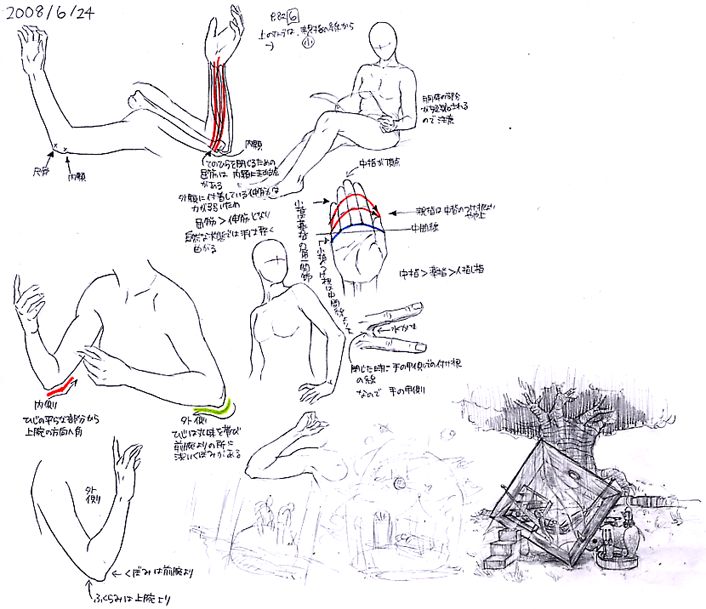 2008/6/24
P.82 6
上のマンガは、
尺骨
内顆
内顆
てのひらを閉じるための
屈筋は 内顆に
がある
外顆に付着している伸筋は
力が弱いため
屈筋>伸筋となり
自然な状態では手は軽く
曲がる
胴体の部分
が短縮される
ので注意
中指が頂点
小指は薬指の第一関節
小指のつけ根は中間線
親指は中指のつけ根より
やや上
中間線
中指>薬指>人指し指
水かき
閉じた時に 手の甲側の指の付け根
の線
なので 手の甲側
内側
ひじの平らな部分から
上腕の方向へ角
外側
ひじは丸味を帯び
前腕よりの所に
浅いくぼみがある
外側
くぼみは前腕より
ふくらみは上腕より